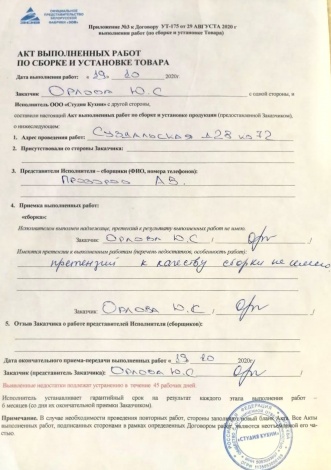 Приложение №3 к Договору УТ-175 от 29 АВГУСТА 2020 г
выполнения работ (по сборке и установке Товара)
АКТ ВЫПОЛНЕННЫХ РАБОТ
ПО СБОРКЕ И УСТАНОВКЕ ТОВАРА
Дата выполнения работ: « 19 » 20 2020г.
Заказчик ОРЛОВА Ю.С с одной стороны, и
Исполнитель ООО «Студия Кухни» с другой стороны,
составили настоящий Акт выполненных работ по сборке и установке продукции (предоставленной Заказчиком),
о нижеследующем:
1. Адрес проведения работ: СУЗДАЛЬСКАЯ д28 кв 72
2. Присутствовали со стороны Заказчика:
3. Представители Исполнителя – сборщики (ФИО, номера телефонов):
4. Приемка выполненных работ:
«сборка»:
Исполнителем выполнен надлежаще, претензий к результату выполненных работ не имею.
Заказчик: ОРЛОВА Ю.С /
Имеются претензии к выполненным работам (перечень недостатков, особенность работ):
претензий к качеству сборки не имею
Заказчик: ОРЛОВА Ю.С /
5. Отзыв Заказчика о работе представителей Исполнителя (сборщиков):
Дата окончательного приема-передачи выполненных работ « 19 » 20 2020г.
Заказчик (представитель Заказчика): ОРЛОВА Ю.С /
Выявленные недостатки подлежат устранению в течение 45 рабочих дней
Исполнитель устанавливает гарантийный срок на результат каждого этапа выполнения работ –
6 месяцев (со дня их окончательной приемки Заказчиком).
Примечание. В случае необходимости проведения повторных работ, стороны заполняют новый бланк Акта. Все Акты
выполненных работ, подписанные сторонами в рамках определенных Договором работ, являются неотъемлемой его ча-
стью
«СТУДИЯ КУХНИ»